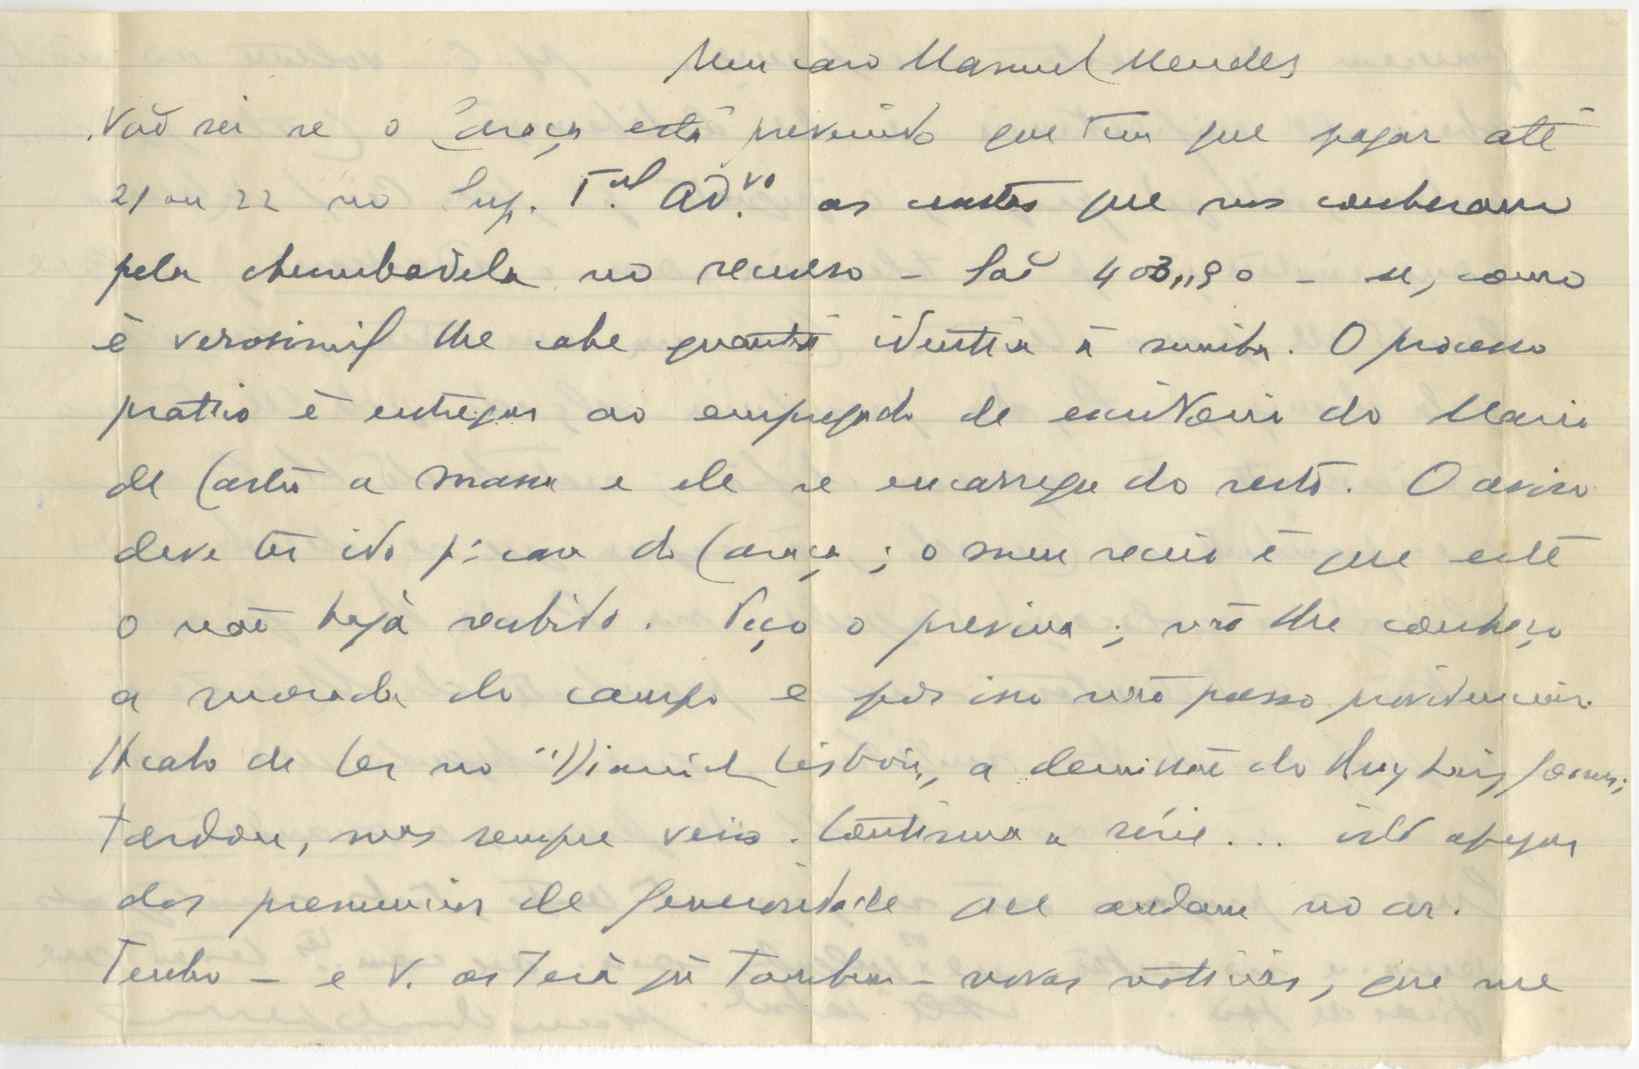 Meu caro Manuel Mendes
Não sei se o Caraça está prevenido que tem que pagar até
21 ou 22 no Sup. T.al Ad.vo as custas que nos couberam
pela chumbadela no recurso – São 403,,90 – se, como
é verosimil lhe cabe quantia identica á minha. O processo
pratico é entregar ao empregado de escritorio do Mario
de Castro a massa e ele se encarrega do resto. O aviso
deve ter ido p: casa do Caraça; o meu receio é que este
o não haja recebido. Peço o previna; não lhe conheço
a morada do campo e por isso não posso providenciar.
Acabo de ler no "Diario de Lisboa", a demissão do Ruy Luis Gomes;
tardou, mas sempre veio. Continua a série... isto apezar
dos prenuncios de generosidade que andam no ar.
Tenho – e V. as terá já tambem – novas noticias, que me